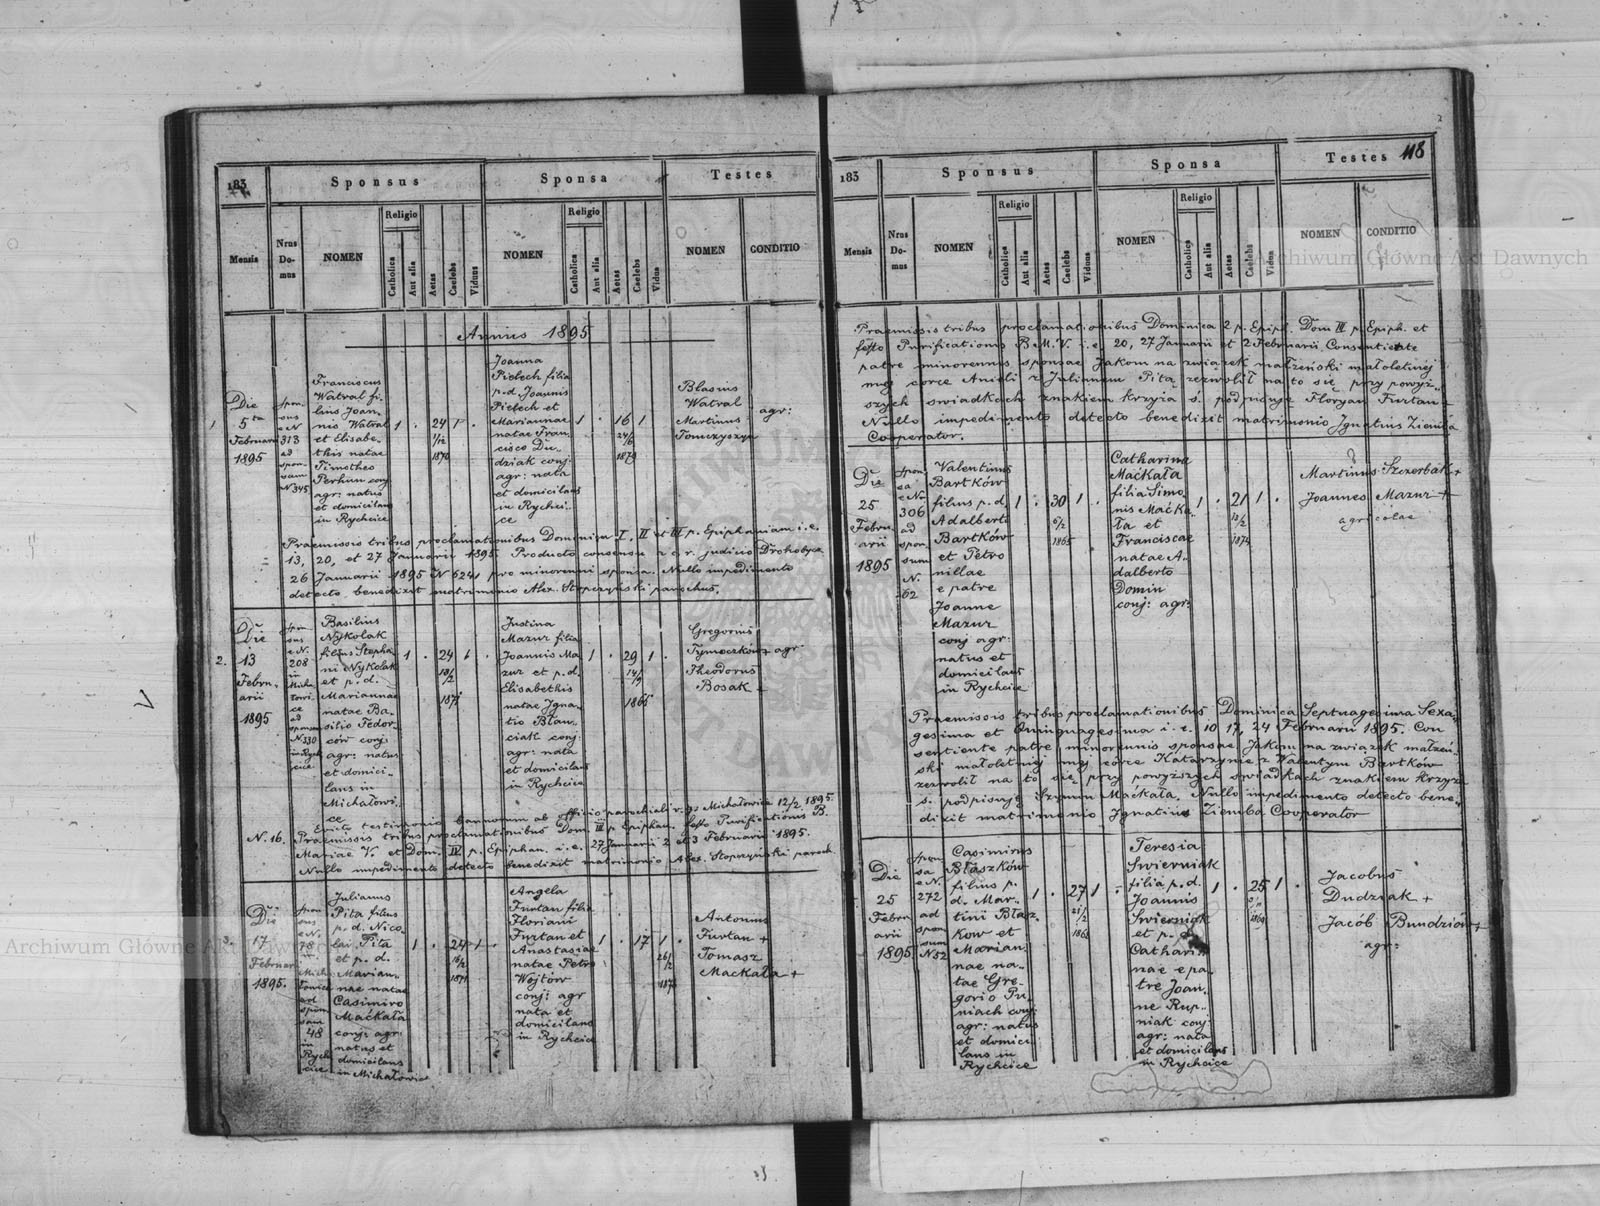 183
Sponsus
Sponsa
Testes
Mensis
Nrus Domus
NOMEN
Religio
Catholica
Aut alia
Aetas
Caelebs
Viduus
NOMEN
Religio
Catholica
Aut alia
Aetas
Caelebs
Vidua
NOMEN
CONDITIO
Annus 1895
1
Die
5ta
Februarii
1895
Sponsus
e N
313
ad
sponsam
N 345
Franciscus
Watral fi-
lius Joan-
nis Watral
et Elisabe-
this natae
Timotheo
Perhun conj
agr: natus
et domicilans
in Rychcice
1 . 24 1 .
1/12
1870
Joanna
Pielech filia
p.d. Joannis
Pielech et
Mariannae
natae Fran-
cisco Du-
dziak conj.
agr: nata
et domicilans
in Rychci-
ce
1 . 16 1
24/6
1879
Blasius
Watral
Martinus
Tomczyszyn
agr:
Praemissis tribus proclamationibus Dominica I, II et III p. Epiphaniam i.e.
13, 20, et 27 Januarii 1895. Producto consensu a c. r. judicio Drohobycz
26 Januarii 1895 N 624 pro minorenni sponsa. Nullo impedimento
detecto benedixit matrimonio Alex. Stopczyński parochus.
2.
Die
13
Febru-
arii
1895
Sponsus
e N.
208
in
Micha
łowi-
ce
ad
sponsam
N 330
in Rych
cice
Basilius
Nykolak
filius Stepha-
ni Nykolak
et p.d.
Mariannae
natae Ba-
silio Fedor-
ców conj:
agr: natus
et domici-
lans in
Michałowi-
ce
1 . 24 1 .
18/2
1871
Justina
Mazur filia
Joannis Ma
zur et p.d.
Elisabethis
natae Igna-
tio Błau-
ciak conj
agr: nata
et domicilans
in Rychcice
1 . 29 1 .
14/9
1865
Gregorius
Tymoczków + agr
Theodorus
Bosak +
N. 16.
Exivit testimonio bannorum ab officio parochiali r. gr Michałowice 12/2 1895.
Praemissis tribus proclamationibus Dom III p. Epiphan. festo Purificationis B.
Mariae V. et Dom. IV p. Epiphan. i.e. 27 Januarii 2 et 3 Februarii 1895.
Nullo impedimento detecto benedixit matrimonio Alex. Stopczyński paroch.
3.
Die
17
Februarii
1895.
Sponsus
e N.
78
in
Micha
łowice
ad
sponsam
48
in
Rych
cice
Julianus
Pita filius
p. d. Nico
lai Pita
et p. d.
Marian-
nae natae
Casimiro
Maćkała
conj: agr:
natus et
domicilans
in Michałowice
1 . 24 1 .
16/2
1871
Angela
Furtan filia
Floriani
Furtan et
Anastasiae
natae Petro
Wojtów
conj: agr
nata et
domicilans
in Rychcice
1 . 17 1 .
26/2
1878
Antonius
Furtan +
Tomasz
Maćkała +
183
Sponsus
Sponsa
Testes
118
Mensis
Nrus Domus
NOMEN
Religio
Catholica
Aut alia
Aetas
Caelebs
Viduus
NOMEN
Religio
Catholica
Aut alia
Aetas
Caelebs
Vidua
NOMEN
CONDITIO
Praemissis tribus proclamationibus Dominica 2 p. Epiph. Dom III p. Epiph. et
festo Purificationis B.M.V. i.e. 20, 27 Januarii et 2 Februarii. Consentiente
patre minorennis sponsae Jakom na związek małżeński małoletniej
mej córce Anieli z Julianem Pita zezwolił na to się przy powyż-
szych świadkach znakiem krzyża ś. podpisuję Floryan Furtan +
Nullo impedimento detecto benedixit matrimonio Ignatius Ziemba
Cooperator.
Die
25
Febru-
arii
1895
Spon
sa
e N.
306
ad
spon-
sum
N.
62
Valentinus
Bartków
filius p.d.
Adalberti
Bartków
et Petro
nillae
e patre
Joanne
Mazur
conj agr:
natus et
domicilans
in Rychcice
1 . 30 1 .
6/2
1865
Catharina
Maćkała
filia Simo
nis Maćka-
ła et
Franciscae
natae A-
dalberto
Domin
conj: agr:
1 . 21 1 .
13/2
1874
Martinus Szczerbak +
Joannes Mazur +
agricolae
Praemissis tribus proclamationibus Dominica Septuagesima Sexa-
gesima et Quinquagesima i. e. 10 17, 24 Februarii 1895. Con
sentiente patre minorennis sponsae Jakom na związek małżeń-
ski małoletniej mej córce Katarzynie z Walentym Bartków
zezwolił na to się przy powyższych świadkach znakiem krzyża
ś. podpisuję Szymon Maćkała. Nullo impedimento detecto bene-
dixit matrimonio Ignatius Ziemba Cooperator
Die
25
Febru
arii
1895.
Spon
sa
e N.
272
ad
spon
sum
N 52
Casimirus
Błaszków
filius p.
d. Mar-
tini Błasz-
kow et
Marian-
nae na-
tae Gre-
gorio Pu-
niach conj:
agr: natus
et domici
lans in
Rychcice
1 . 27 1 .
21/2
1868
Teresia
Swierniak
filia p.d.
Joannis
Swierniak
et p. d.
Cathari-
nae e pa-
tre Joan-
ne Rup-
niak conj:
agr: nata
et domicilans
in Rychcice
1 . 25 1 .
1869
Jacobus
Dudziak +
Jacób Bundziów +
agr:
Archiwum Główne Akt Dawnych
Archiwum Główne Akt Dawnych